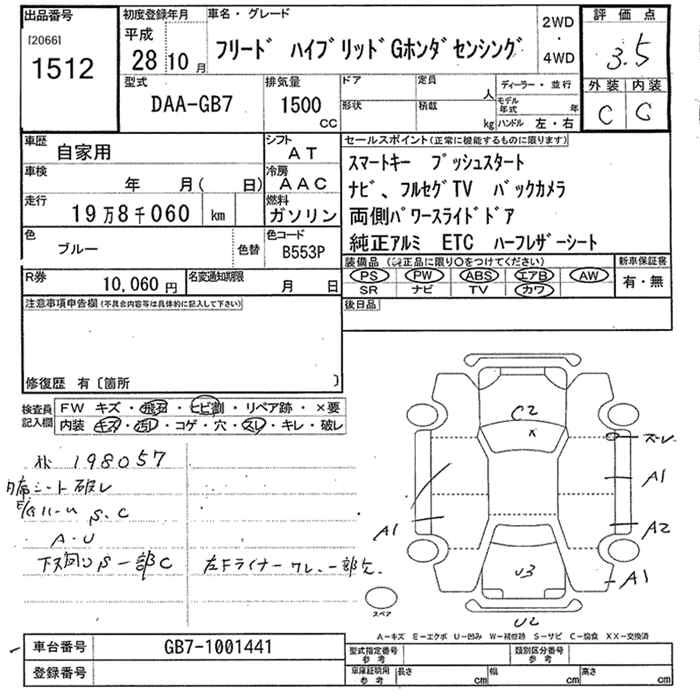 出品番号
[2066]
1512
初度登録年月
平成
28 10 月
車名・グレード
フリード ハイブリッドGホンダセンシング
2WD
・
4WD
評価点
3.5
外装 内装
C C
型式
DAA-GB7
排気量
1500
CC
ドア
形状
定員
人
積載
kg
ディーラー・並行
モデル年式 年
ハンドル 左・右
車歴
自家用
シフト
AT
車検
年 月( 日)
冷房
AAC
走行
19万8千060 km
燃料
ガソリン
色
ブルー
色替
色コード
B553P
セールスポイント(正常に機能するものに限ります)
スマートキー プッシュスタート
ナビ、フルセグTV バックカメラ
両側パワースライドドア
純正アルミ ETC ハーフレザーシート
装備品(純正品に限り○をつけてください)
PS PW ABS エアB AW
SR ナビ TV カワ
新車保証書
有・無
R券
10,060 円
名変通知期限
月 日
後日品
注意事項申告欄(不具合内容等は具体的に記入して下さい)
修復歴 有〔箇所 〕
検査員記入欄
FW キズ・飛石・ヒビ割・リペア跡・×要
内装 キズ・汚レ・コゲ・穴・スレ・キレ・破レ
198057
シート破レ
S.C
A.U
下廻りS一部C
左Fライナーワレ、一部欠
C2
X
スレ
A1
A1
A2
A1
U3
U2
スペア
A-キズ E-エクボ U-凹み W-補修跡 S-サビ C-腐食 XX-交換済
車台番号
GB7-1001441
登録番号
型式指定番号
参考
類別区分番号
参考
車庫証明用
参考
長さ cm
幅 cm
高さ cm